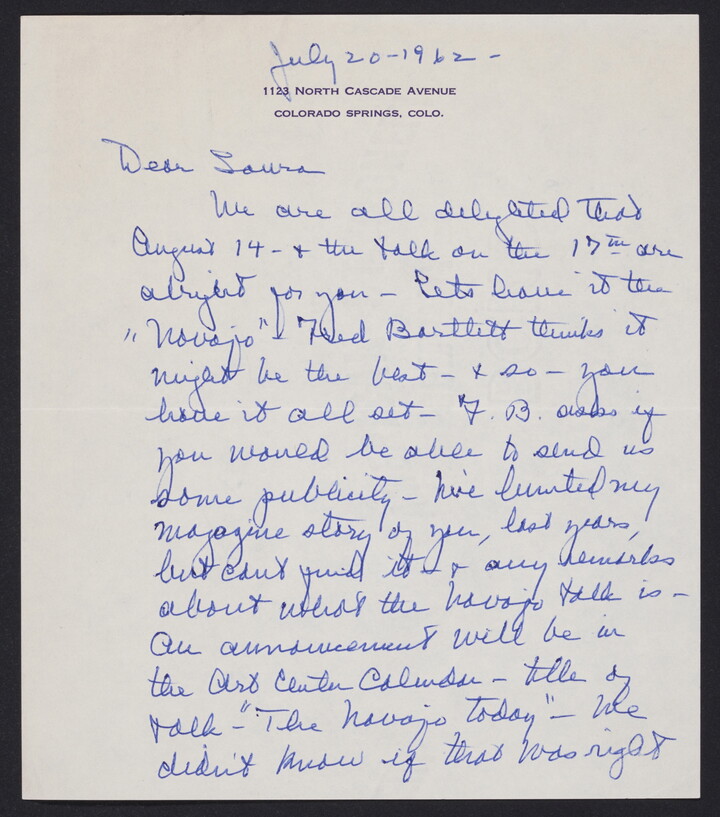 July 20-1962-
1123 NORTH CASCADE AVENUE
COLORADO SPRINGS, COLO.
Dear Laura
We are all delighted that
August 14 - & the talk on the 17th are
alright for you - Lets leave it the
"Navajo" - Fred Bartlett thinks it
might be the best - & so - you
have it all set - F. B. asks if
you would be able to send us
some publicity - We've hunted my
magazine story of you, last years,
but cant find it - & any remarks
about what the Navajo talk is -
An announcement will be in
the Art Center Calendar - title of
talk - "The Navajo Today" - We
didn't know if that was right